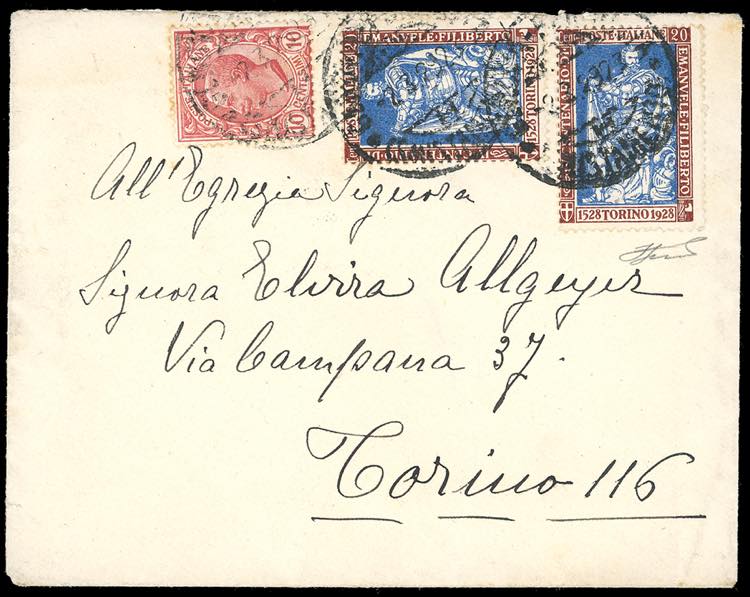 10 10
POSTE ITALIANE
CENTESIMI
20
EMANVELE·FILIBERTO
1528 TORINO 1928
POSTE·ITALIANE 20
EMANVELE·FILIBERTO
1528 TORINO 1928
All' Egregia Signora
Signora Elvira Allgeyer
Via Campana 37.
Torino 116